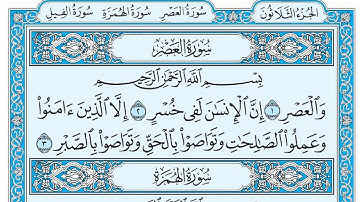 الجزء الثلاثون سورة العصر سورة الهمزة سورة الفيل
سُورَةُ العَصْرِ
بِسْمِ اللَّهِ الرَّحْمَٰنِ الرَّحِيمِ
وَالْعَصْرِ ١ إِنَّ الْإِنسَانَ لَفِي خُسْرٍ ٢ إِلَّا الَّذِينَ ءَامَنُوا
وَعَمِلُوا الصَّالِحَاتِ وَتَوَاصَوْا بِالْحَقِّ وَتَوَاصَوْا بِالصَّبْرِ ٣
سُورَةُ الهُمَزَةِ